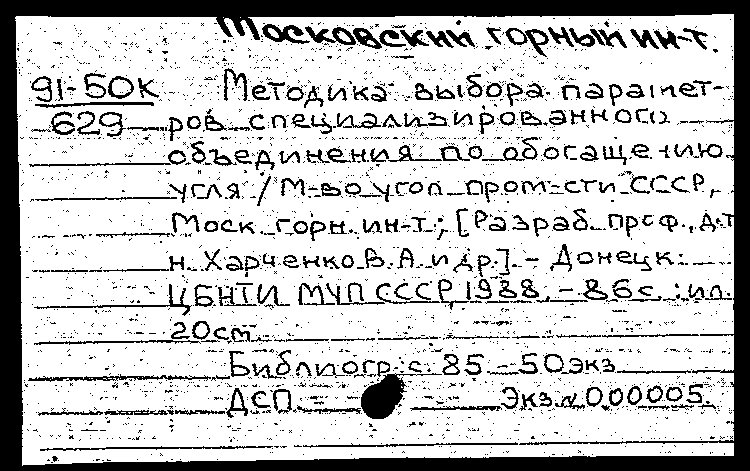 Московский горный ин-т.
91-50К Методика выбора парамет-
629 ров специализированного
объединения по обогащению
угля / М-во угол. пром-сти СССР,
Моск. горн. ин-т; [Разраб. проф., д.т.
н. Харченко В.А. и др.]. - Донецк:
ЦБНТИ МУП СССР, 1988. - 86 с.: ил.
20 см.
Библиогр.: с. 85 - 50 экз.
ДСП. Экз. № 000005.